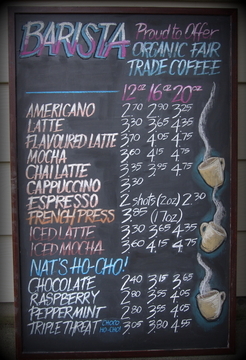 BARISTA Proud to Offer
ORGANIC FAIR
TRADE COFFEE
12oz 16oz 20oz
AMERICANO 2.70 2.90 3.25
LATTE 3.30 3.65 4.35
FLAVOURED LATTE 3.70 4.05 4.75
MOCHA 3.60 4.15 4.75
CHAI LATTE 3.35 3.95 4.75
CAPPUCCINO 3.30
ESPRESSO 2 shots (2oz) 2.30
FRENCH PRESS 3.85 (17oz)
ICED LATTE 3.30 3.65 4.35
ICED MOCHA 3.60 4.15 4.75
NAT'S HO-CHO!
CHOCOLATE 2.40 3.15 3.65
RASPBERRY 2.80 3.55 4.05
PEPPERMINT 2.80 3.55 4.05
TRIPLE THREAT HO-CHO! 3.05 3.80 4.55